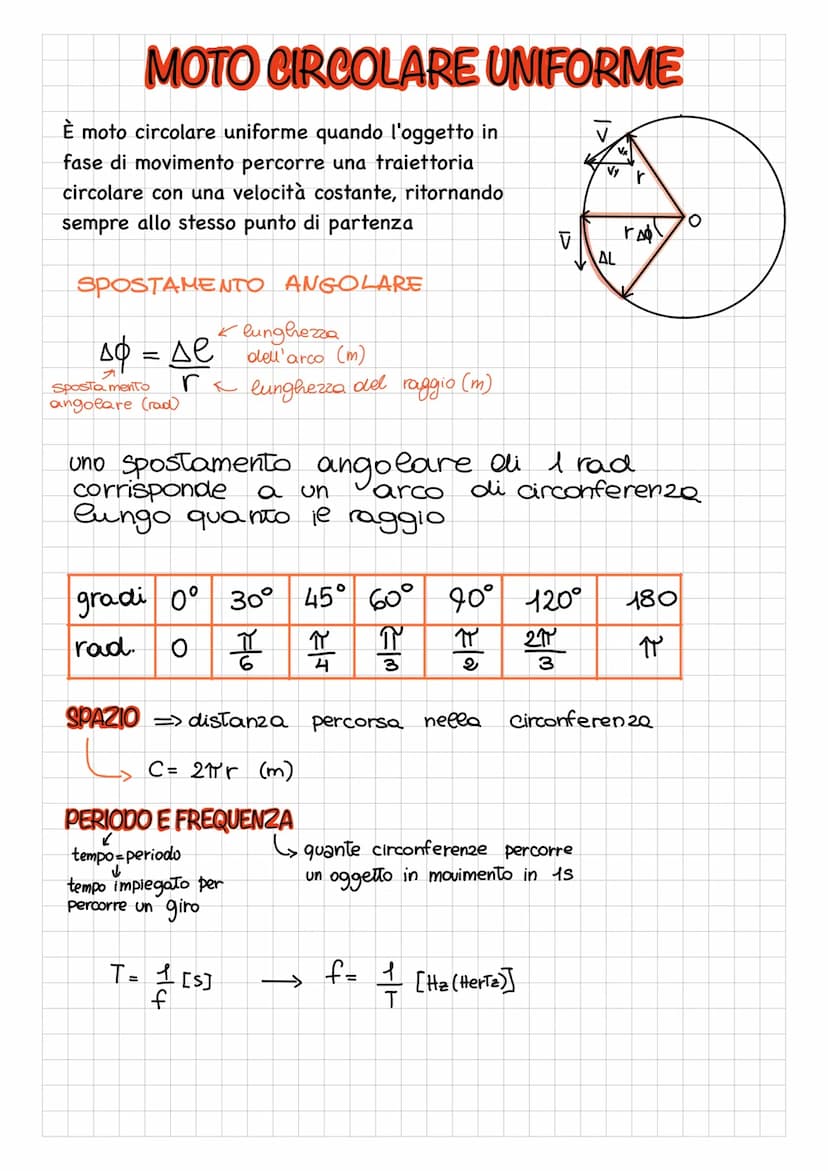 MOTO CIRCOLARE UNIFORME
È moto circolare uniforme quando l'oggetto in
fase di movimento percorre una traiettoria
circolare con una velocità costante, ritornando
sempre allo stesso punto di partenza
V
Vx
Vy
r
O
r Δϕ
V
ΔL
SPOSTAMENTO ANGOLARE
Δϕ = Δl / r
← lunghezza
dell'arco (m)
← lunghezza del raggio (m)
spostamento
angolare (rad)
uno spostamento angolare di 1 rad
corrisponde a un arco di circonferenza
lungo quanto il raggio
gradi 0° 30° 45° 60° 90° 120° 180
rad. 0 π/6 π/4 π/3 π/2 2π/3 π
SPAZIO => distanza percorsa nella circonferenza
C= 2πr (m)
PERIODO E FREQUENZA
tempo=periodo
tempo impiegato per
percorre un giro
quante circonferenze percorre
un oggetto in movimento in 1s
T= 1/f [s] → f= 1/T [Hz(Hertz)]